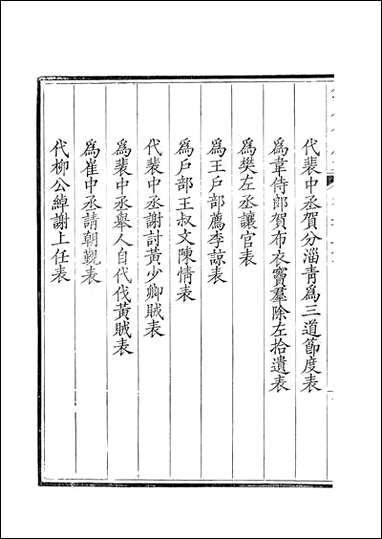 代裴中丞賀分淄青為三道節度表
為韋侍郎賀布衣竇羣除左拾遺表
為樊左丞讓官表
為王戶部薦李諒表
為戶部王叔文陳情表
代裴中丞謝討黃少卿賊表
為裴中丞舉人自代伐黃賊表
為崔中丞請朝覲表
代柳公綽謝上任表